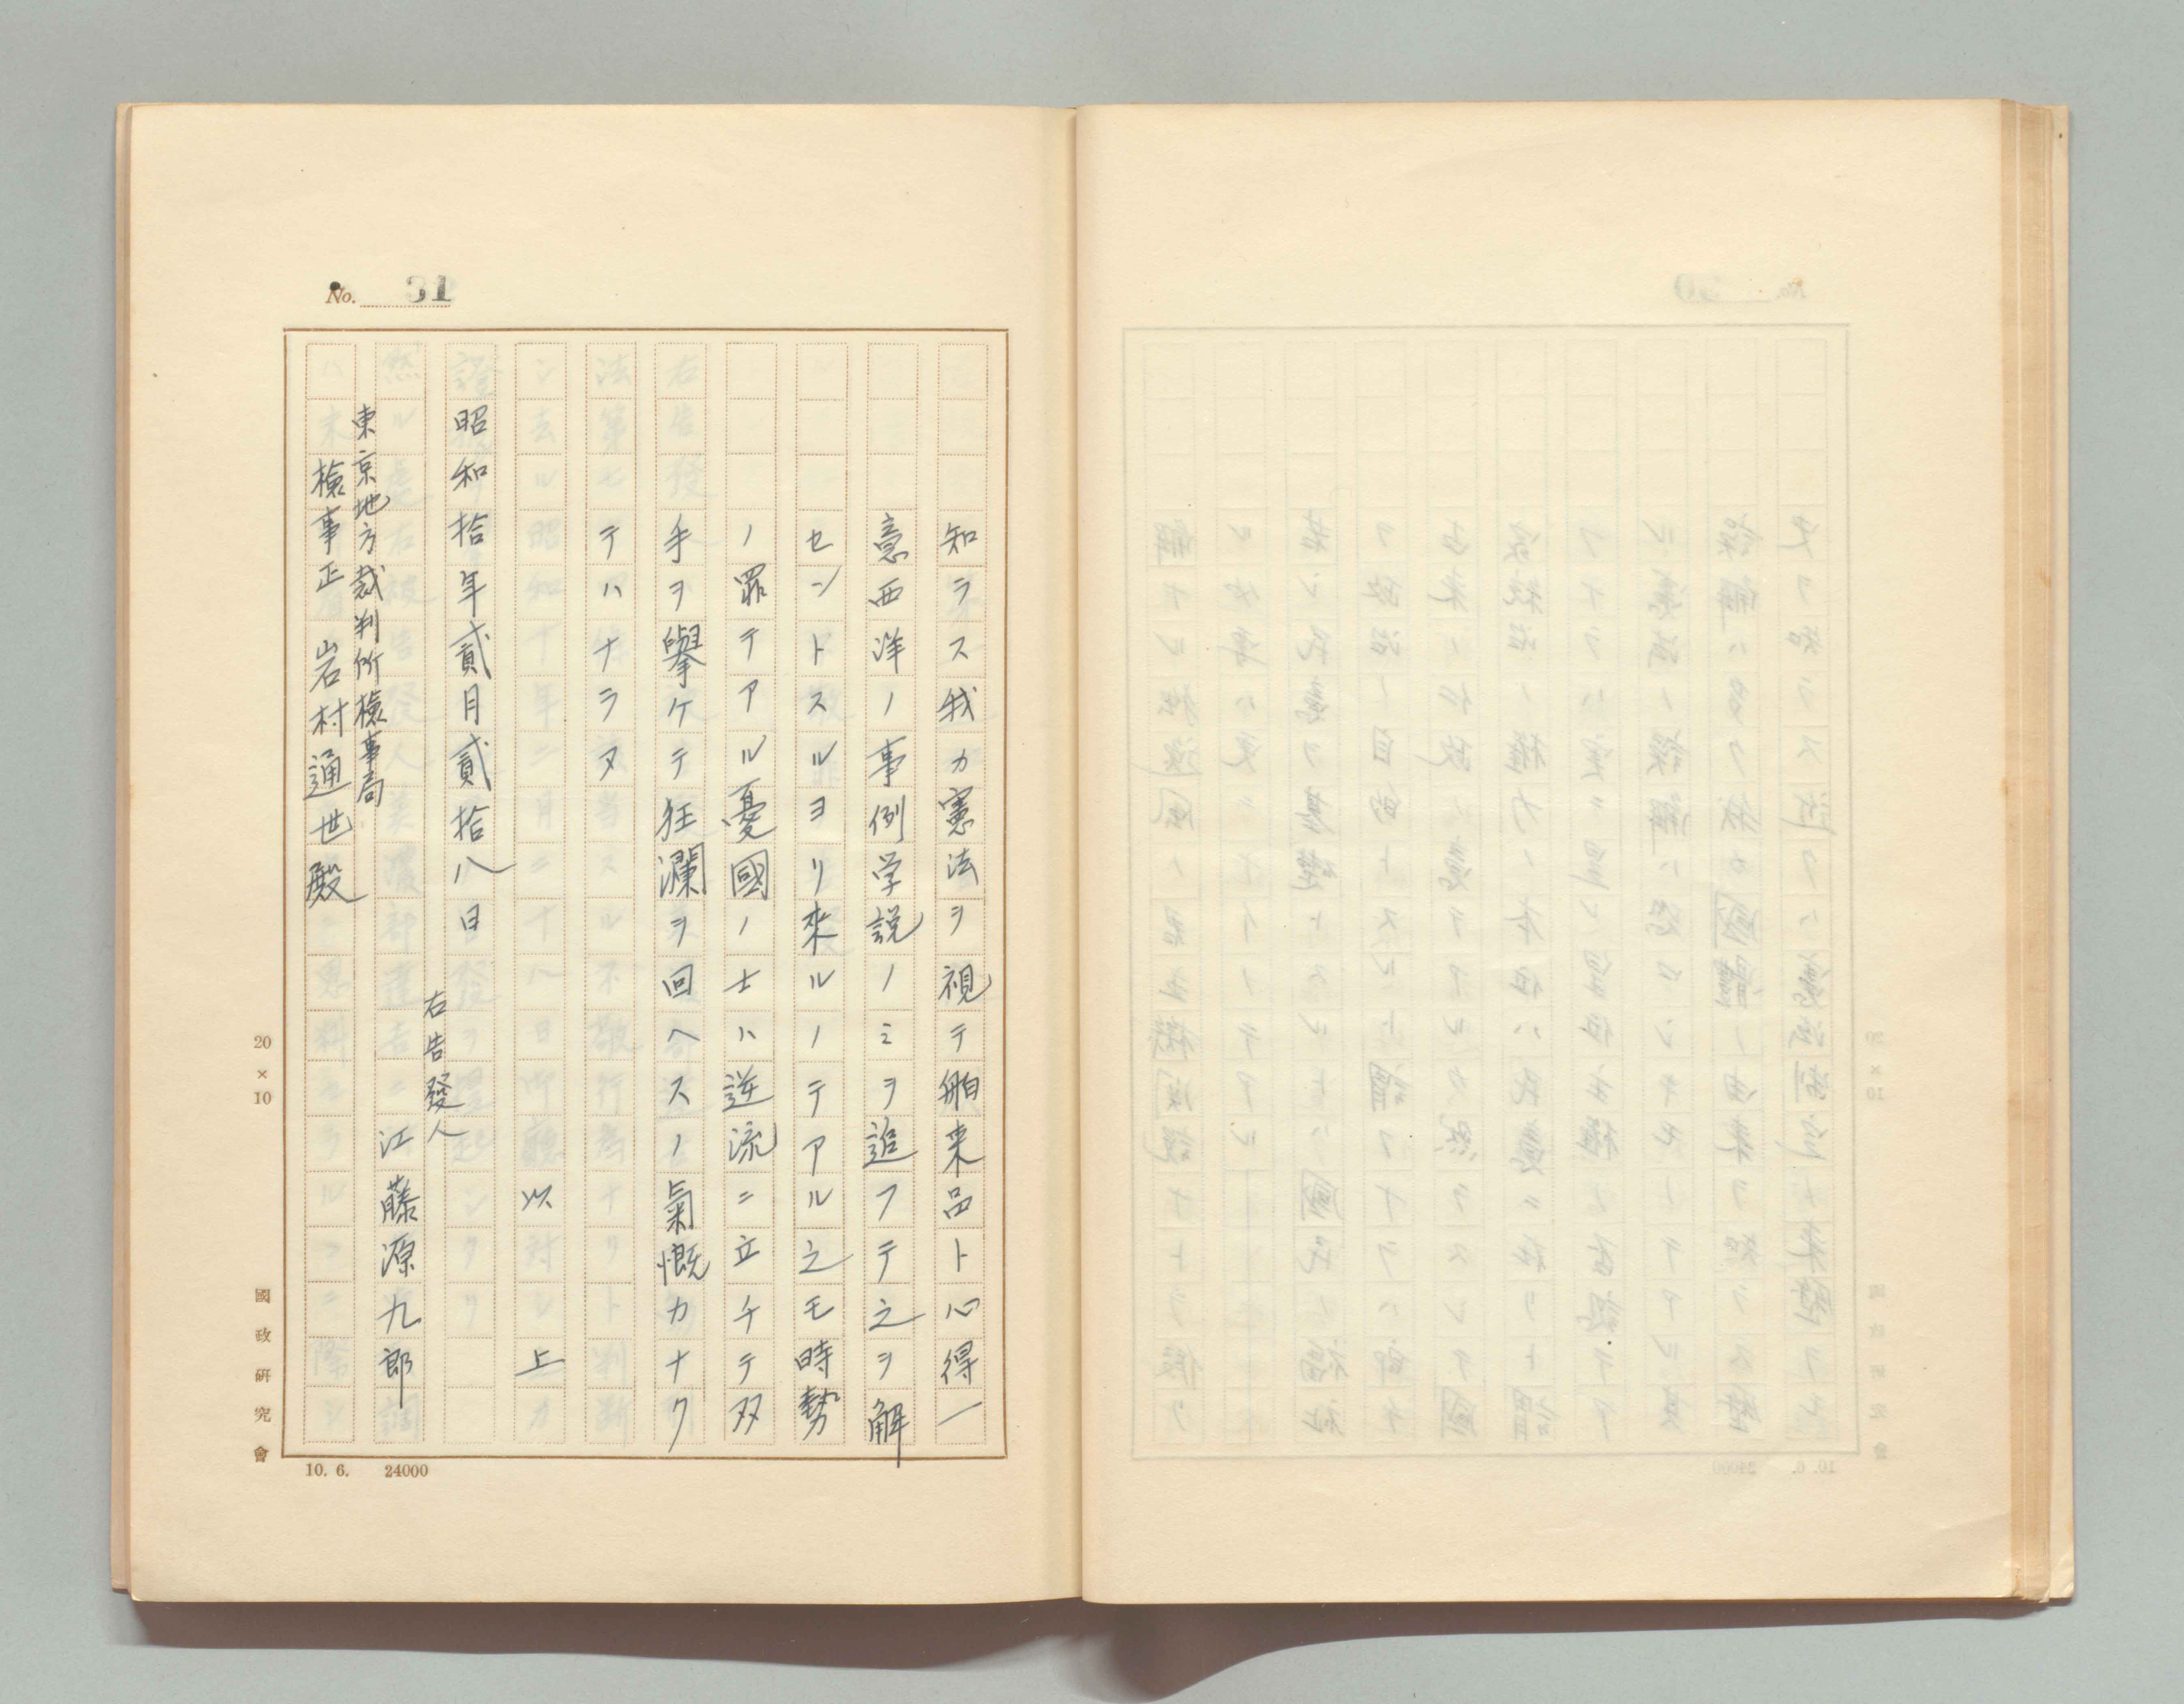 No. 31
知ラス我カ憲法ヲ視テ舶来品ト心得一
意西洋ノ事例学説ノミヲ追フテ之ヲ解
セントスルヨリ來ルノテアル之モ時勢
ノ罪テアル憂國ノ士ハ逆流ニ立チテ双
手ヲ擧ケテ狂瀾ヲ回ヘスノ氣慨カナク
テハナラヌ
以上
昭和拾年貳月貳拾八日
右告發人
江藤源九郎
東京地方裁判所檢事局
檢事正 岩村通世殿
20×10
國政研究會
10. 6. 24000